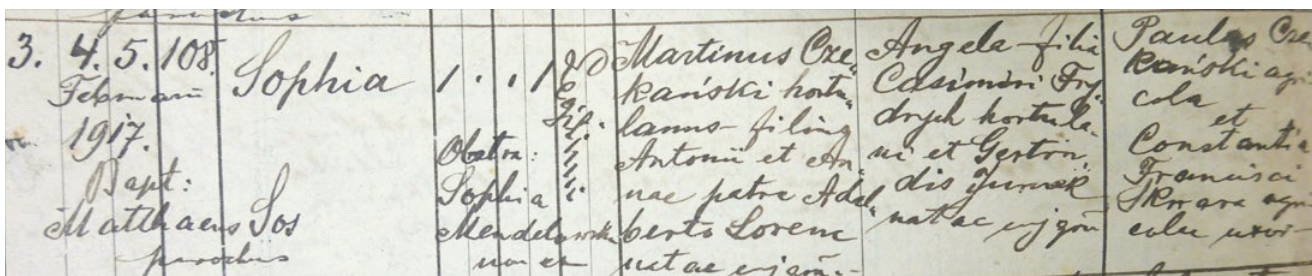 3. 4. 5. 108.
Februarii
1917.
Bapt:
Matthaeus Sos
parochus
Sophia
1 . . 1
Obstra:
Sophia
Mendelowska
Martinus Cze-
kański hortu-
lanus - filius
Antonii et An-
nae patre Adal-
berto Lorenc
natae
Angela filia
Casimiri Fry-
drych hortula-
ni et Gertru-
dis
natae
Paulus Cze-
kański agri-
cola
et
Constantia
Francisci
Skwara agri-
colae uxor